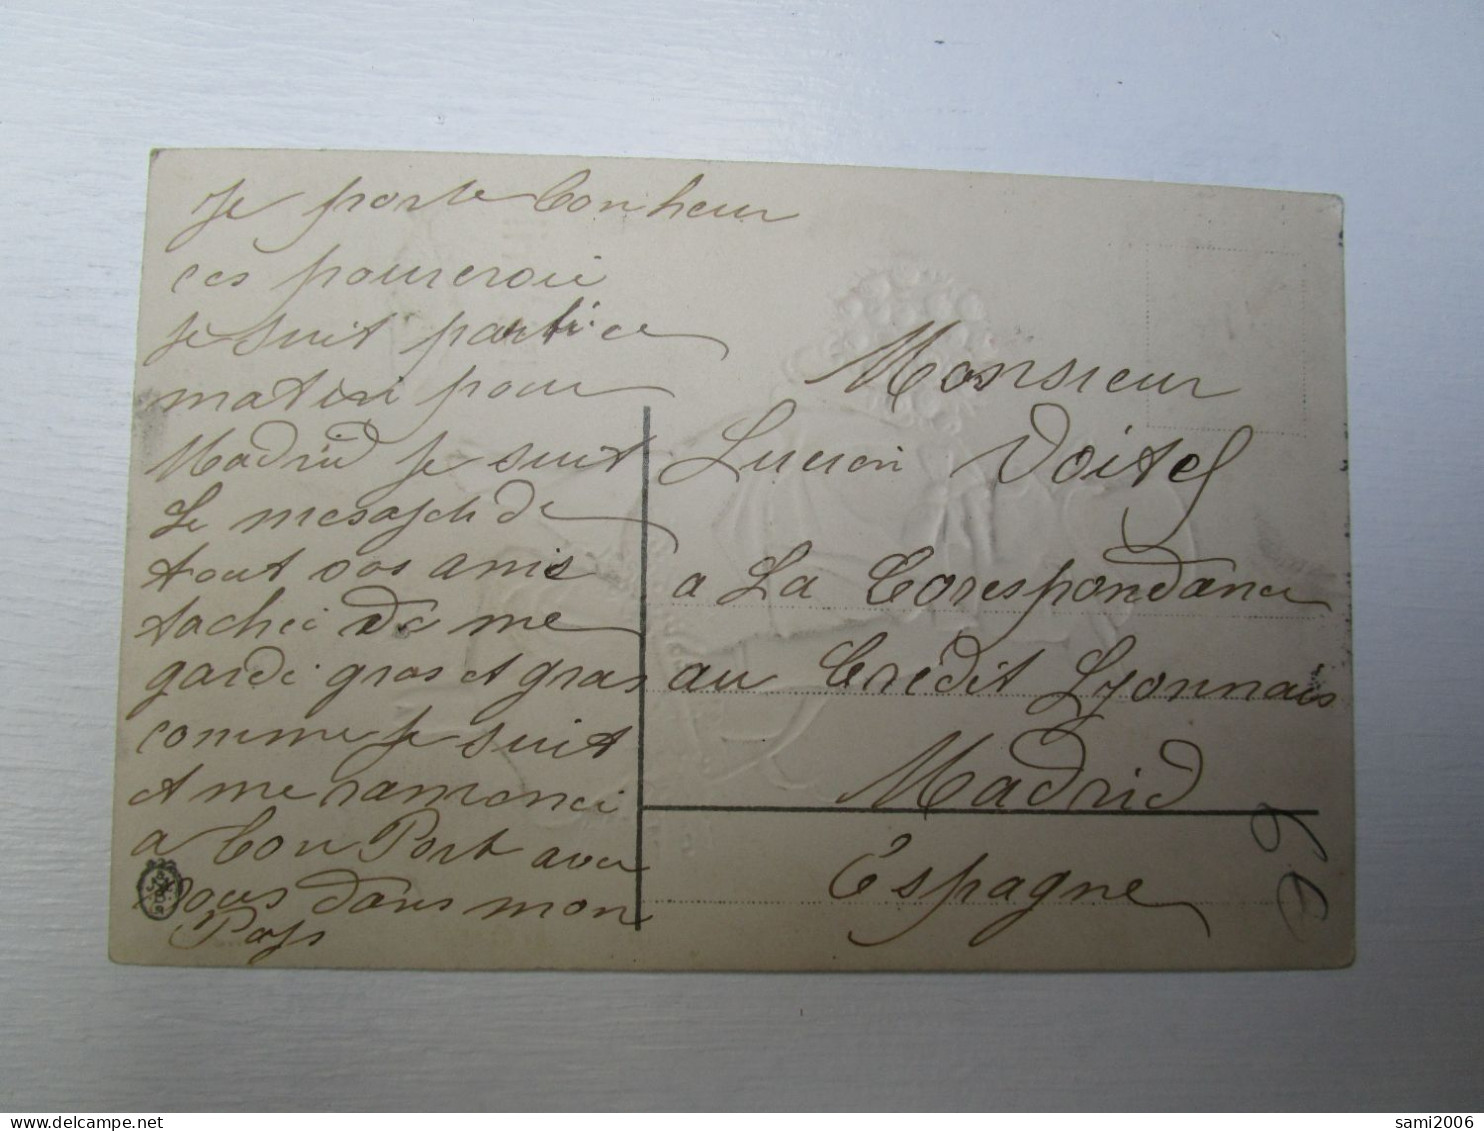 Je porte bonheur
ces pourcroii
Je suit parti ce
matin pour
Madrid Je suit
Le mesajeh de
tout vos amis
tachei de me
gardi gros et gras
comme Je suit
et me ramonei
a bon Port avec
vous dans mon
Pays
Monsieur
Lucien Voitel
a La Corespondance
au Crédit Lyonnais
Madrid
Espagne
sami2006